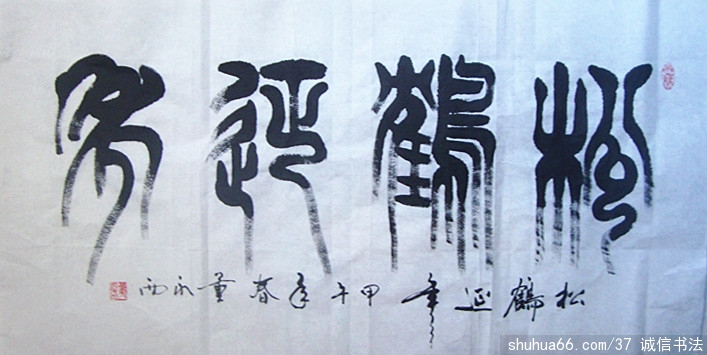 松鶴延年
松鶴延年 甲午年春 董永西
shuhua66.com/37 诚信书法